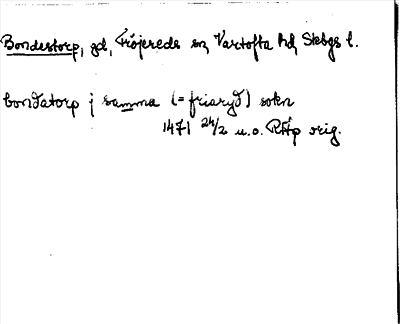 Bondestorp, gd, Fröjereds sn, Vartofta hd, Skbgs l.
bondatorp j samma (= friaryd) sokn
1471 24/2 u.o. RAp orig.